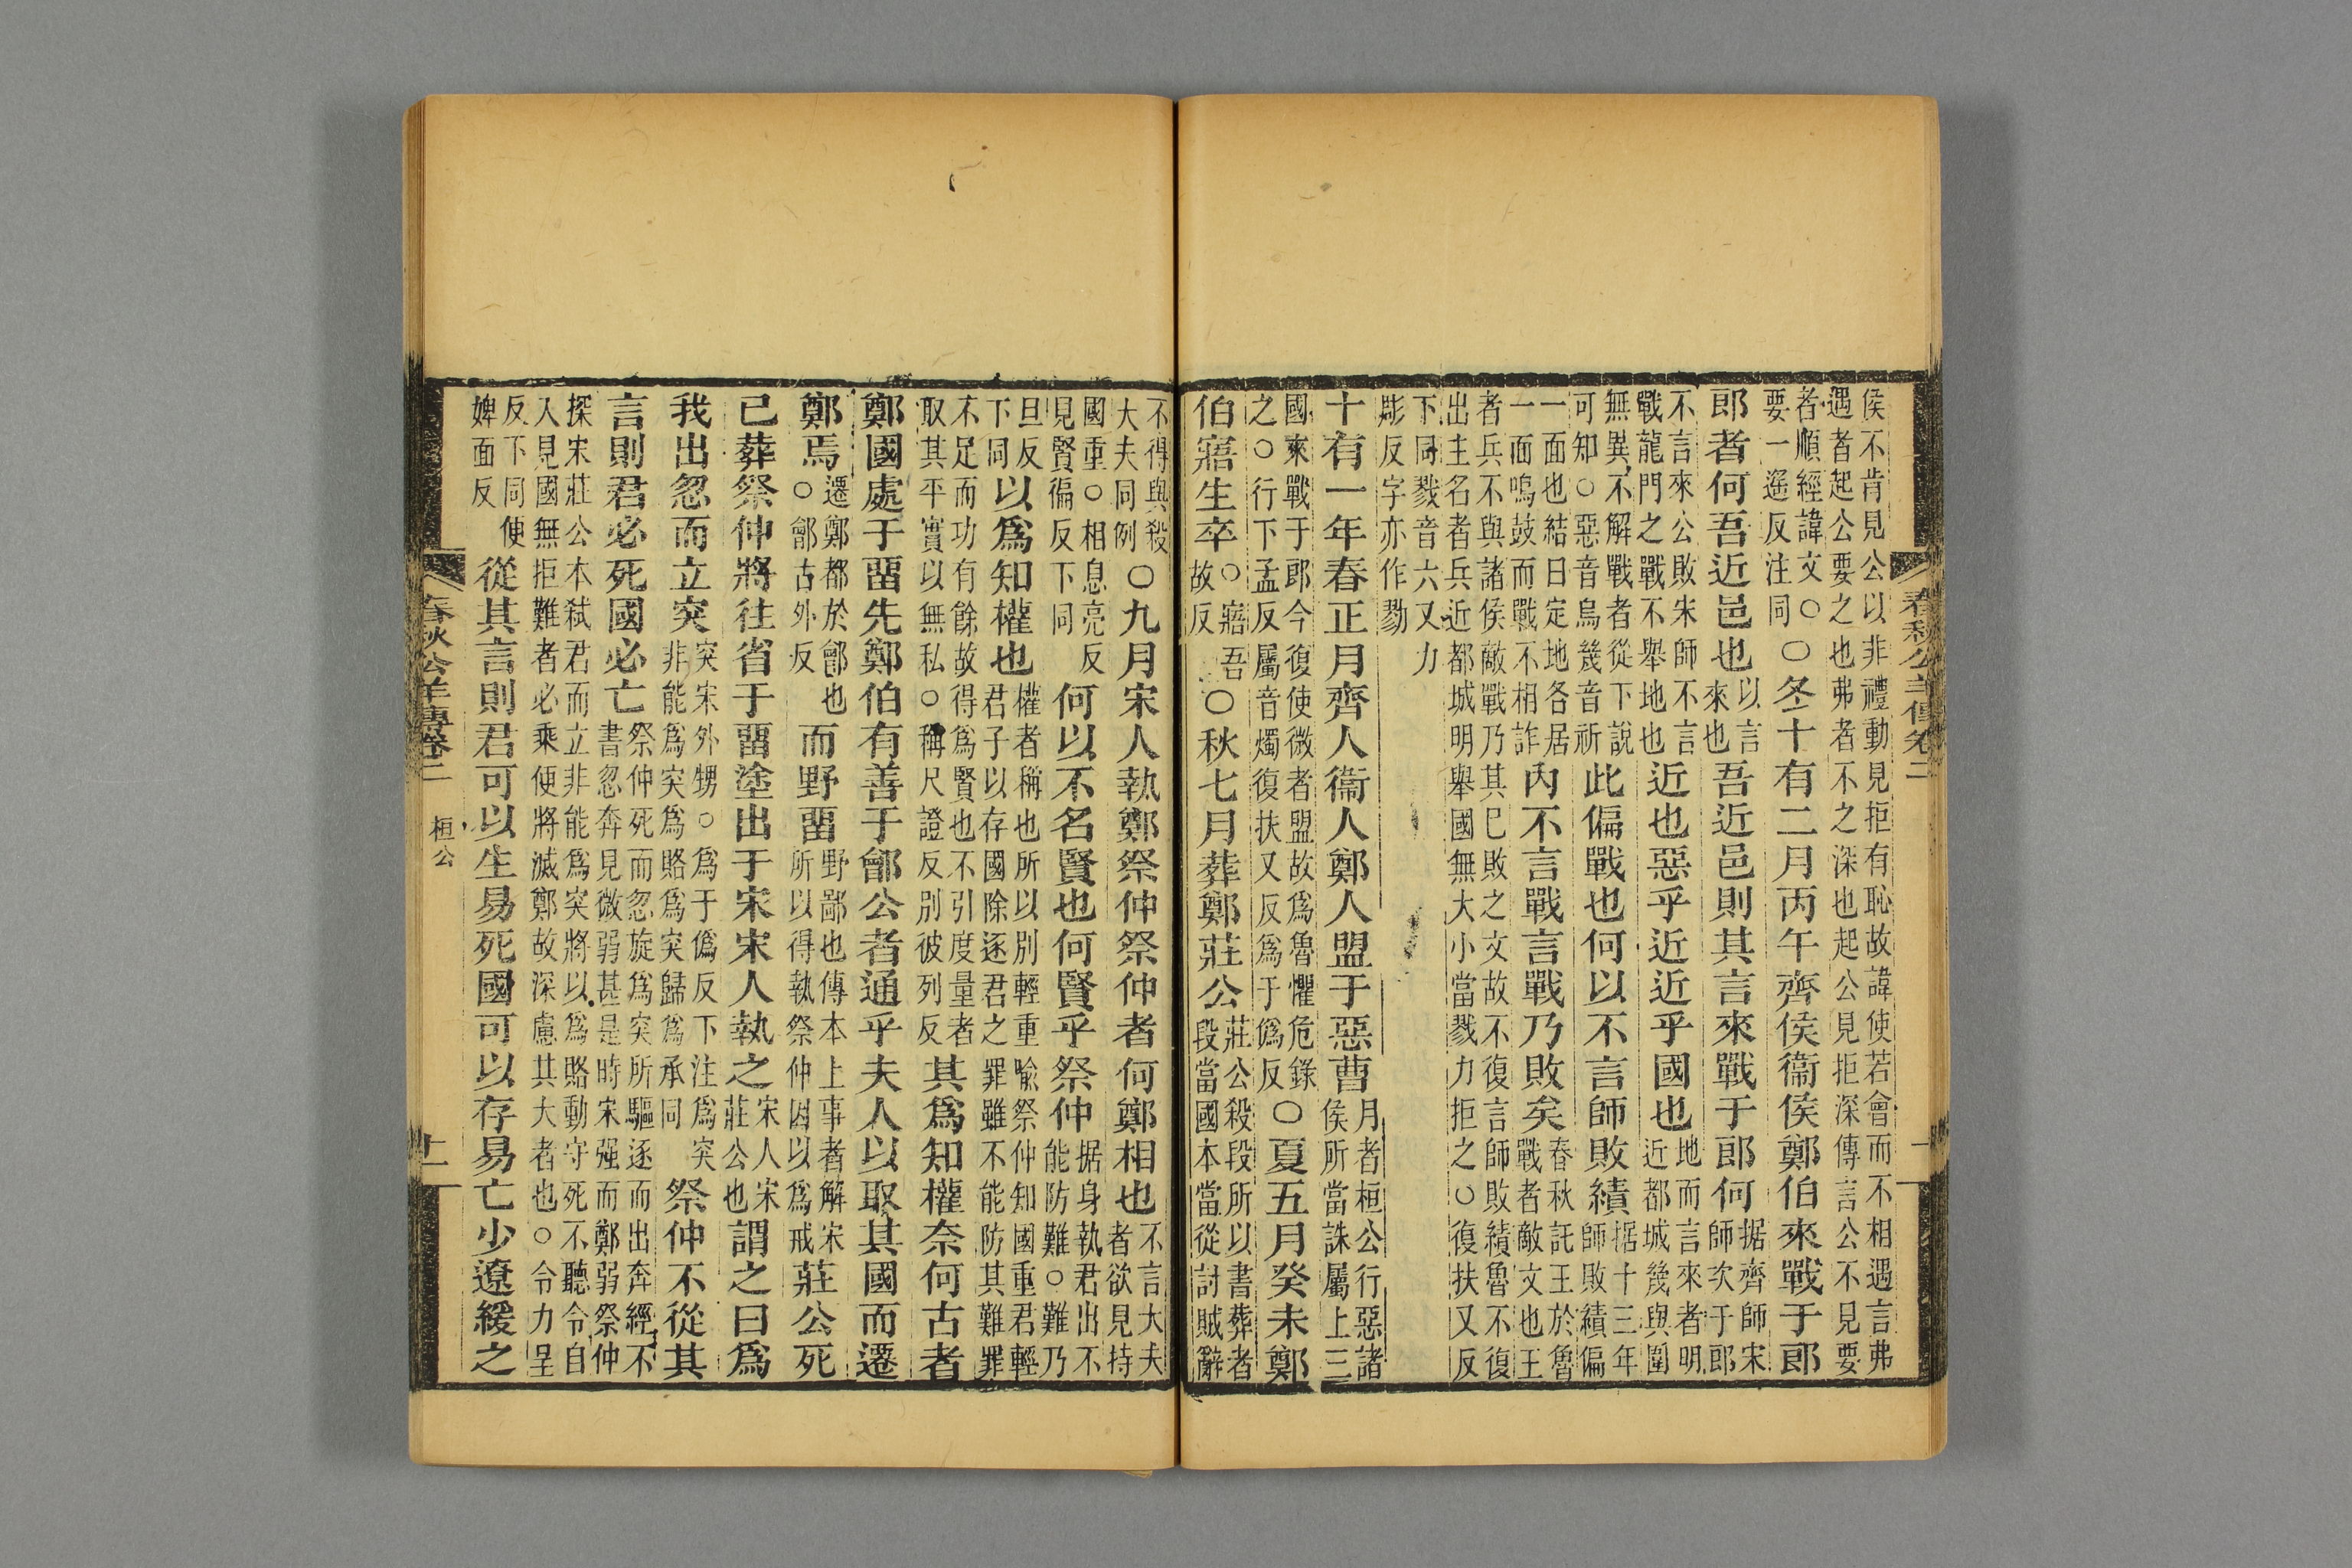 春秋公羊傳卷二
侯不肯見公以非禮動見拒有恥故諱使若會而不相遇言弗
遇者起公要之也弗者不之深也起公見拒深傳言公不見要
者順經諱文○
要一遙反注同
○冬十有二月丙午齊侯衞侯鄭伯來戰于郎
郎者何吾近邑也
以言
來也
吾近邑則其言來戰于郎何
据齊師宋
師次于郎
不言來公敗宋師不言
戰龍門之戰不舉地也
近也惡乎近近乎國也
地而言來者明
近都城幾與圍
無異不解戰者從下說
可知○惡音烏幾音祈
此偏戰也何以不言師敗績
据十三年
師敗績偏
一面也結日定地各居
一面鳴鼓而戰不相詐
內不言戰言戰乃敗矣
春秋託王於魯
戰者敵文也王
者兵不與諸侯敵戰乃其已敗之文故不復言師敗績魯不復
出主名者兵近都城明舉國無大小當戮力拒之○復扶又反
下同戮音六又力
彫反字亦作勠
十有一年春正月齊人衞人鄭人盟于惡曹
月者桓公行惡諸
侯所當誅屬上三
國來戰于郎今復使微者盟故爲魯懼危錄
之○行下孟反屬音燭復扶又反爲于僞反
○夏五月癸未鄭
伯寤生卒
○寤吾
故反
○秋七月葬鄭莊公
莊公殺段所以書葬者
段當國本當從討賊辭
不得與殺
大夫同例
○九月宋人執鄭祭仲祭仲者何鄭相也
不言大夫
者欲見持
國重○相息亮反
見賢徧反下同
何以不名賢也何賢乎祭仲
据身執君出不
能防難○難乃
旦反
下同
以爲知權也
權者稱也所以別輕重喩祭仲知國重君輕
君子以存國除逐君之罪雖不能防其難罪
不足而功有餘故得爲賢也不引度量者
取其平實以無私○稱尺證反別彼列反
其爲知權奈何古者
鄭國處于畱先鄭伯有善于鄶公者通乎夫人以取其國而遷
鄭焉
遷鄭都於鄶也
○鄶古外反
而野畱
野鄙也傳本上事者解宋
所以得執祭仲因以爲戒
莊公死
已葬祭仲將往省于畱塗出于宋宋人執之
宋人宋
莊公也
謂之曰爲
我出忽而立突
突宋外甥○爲于僞反下注爲突
非能爲突爲賂爲突歸爲承同
祭仲不從其
言則君必死國必亡
祭仲死而忽旋爲突所驅逐而出奔經不
書忽奔見微弱甚是時宋强而鄭弱祭仲
探宋莊公本弑君而立非能爲突將以爲賂動守死不聽令自
入見國無拒難者必乘便將滅鄭故深慮其大者也○令力呈
反下同便
婢面反
從其言則君可以生易死國可以存易亡少遼緩之
春秋公羊傳卷二
桓公
十一